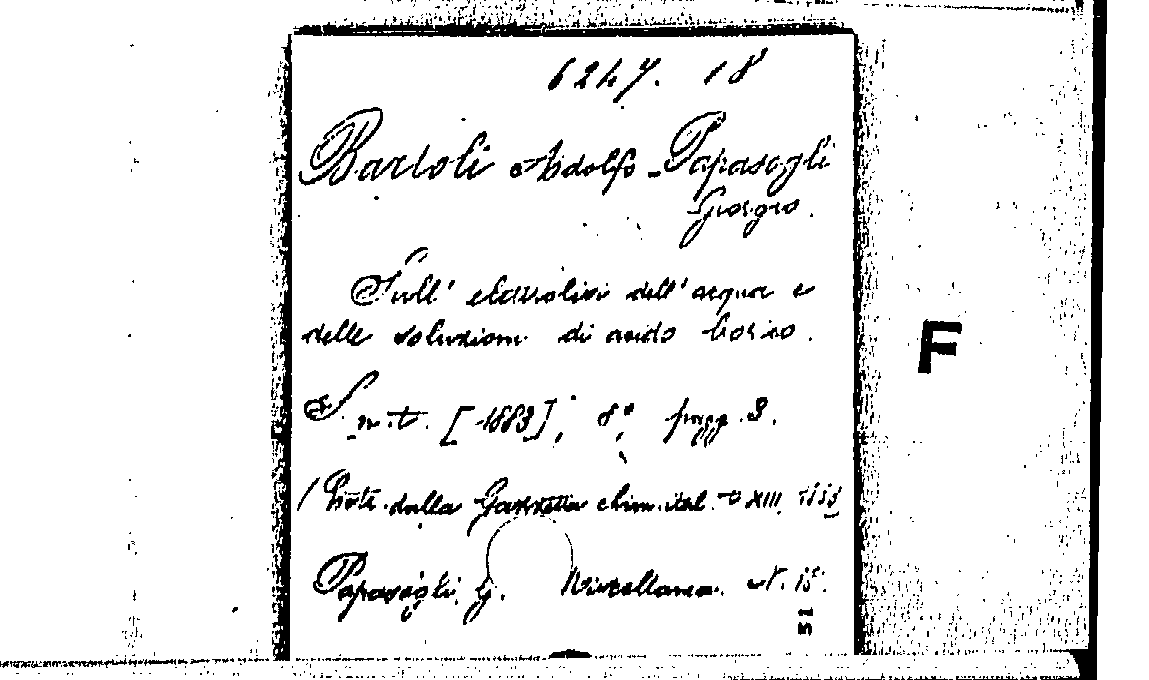 6247. 18
Bartoli Adolfo - Papasogli
Giorgio.
Sull' elettrolisi dell' acqua e
delle soluzioni di acido borico.
S. n. t. [1883], 8°, pagg. 8.
Estr. dalla Gazzetta chim. ital. t. XIII, 1883
Papasogli, G. Miscellanea. N. 18.
51
F